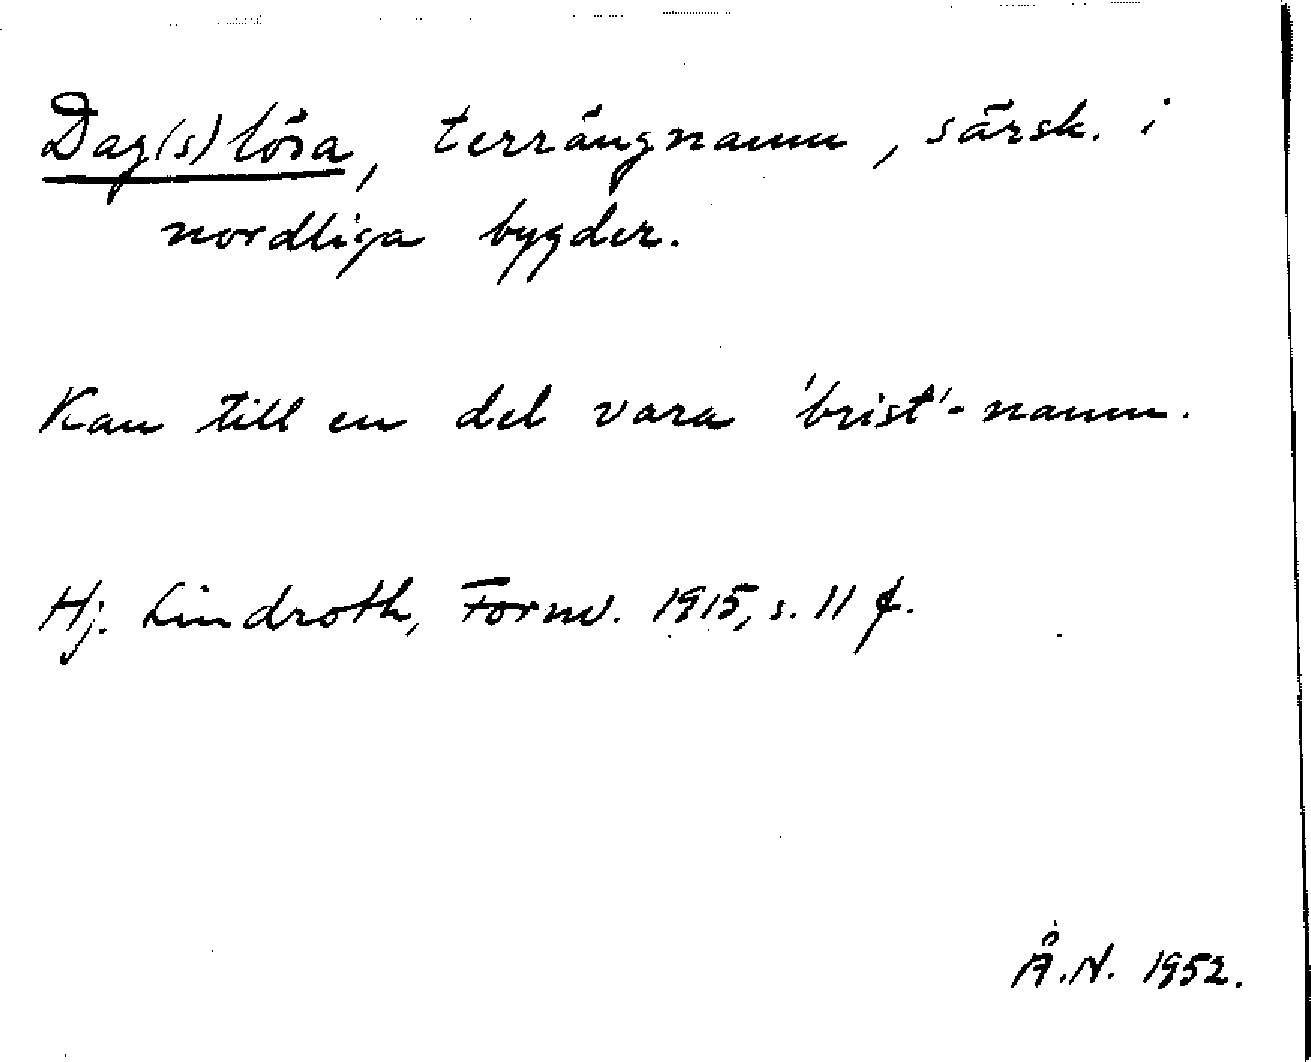 Dag(s)lösa, terrängnamn, särsk. i
nordliga bygder.
Kan till en del vara 'brist'-namn.
Hj. Lindroth, Fornv. 1915, s. 11 f.
Å.N. 1952.